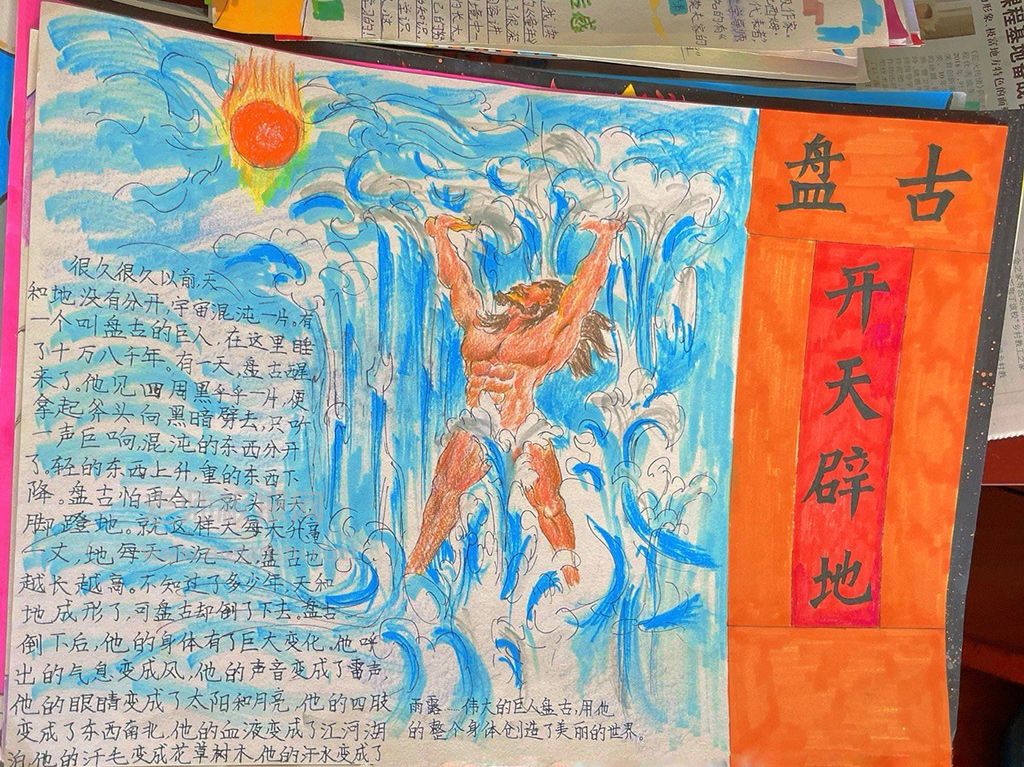 盘古
开天辟地
很久很久以前，天
和地没有分开，宇宙混沌一片。有
一个叫盘古的巨人，在这里睡
了十万八千年。有一天，盘古醒
来了。他见四周黑乎乎一片，便
拿起斧头向黑暗劈去，只听
一声巨响混沌的东西分开
了。轻的东西上升，重的东西下
降。盘古怕再合上就头顶天，
脚蹬地。就这样天每天升高
一丈，地每天下沉一丈，盘古也
越长越高。不知过了多少年，天和
地成形了，可盘古却倒了下去。盘古
倒下后，他的身体有了巨大变化。他呼
出的气息变成风，他的声音变成了雷声，
他的眼睛变成了太阳和月亮，他的四肢
变成了东西南北，他的血液变成了江河湖
泊，他的汗毛变成花草树木，他的汗水变成了
雨露……伟大的巨人盘古，用他
的整个身体创造了美丽的世界。